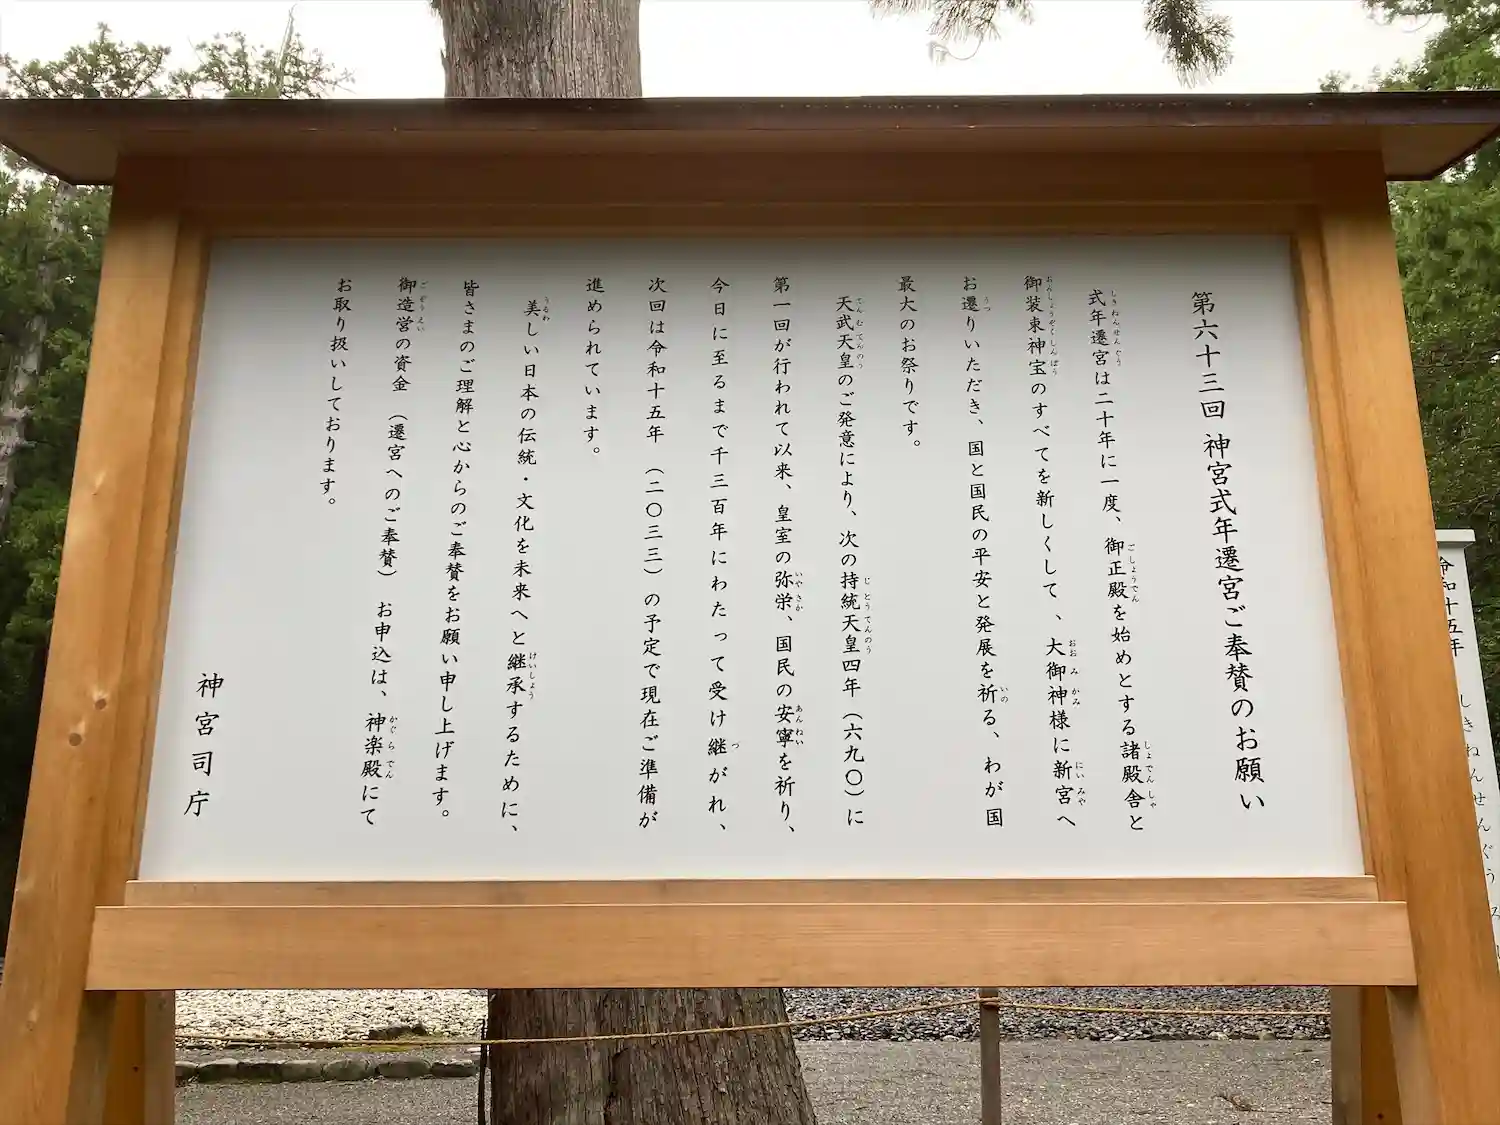 第六十三回 神宮式年遷宮ご奉賛のお願い
式年遷宮は二十年に一度、御正殿を始めとする諸殿舎と
御装束神宝のすべてを新しくして、大御神様に新宮へ
お遷りいただき、国と国民の平安と発展を祈る、わが国
最大のお祭りです。
天武天皇のご発意により、次の持統天皇四年(六九〇)に
第一回が行われて以来、皇室の弥栄、国民の安寧を祈り、
今日に至るまで千三百年にわたって受け継がれ、
次回は令和十五年(二〇三三)の予定で現在ご準備が
進められています。
美しい日本の伝統・文化を未来へと継承するために、
皆さまのご理解と心からのご奉賛をお願い申し上げます。
御造営の資金(遷宮へのご奉賛)お申込は、神楽殿にて
お取り扱いしております。
神宮司庁
令和十五年
しきねんせんぐう